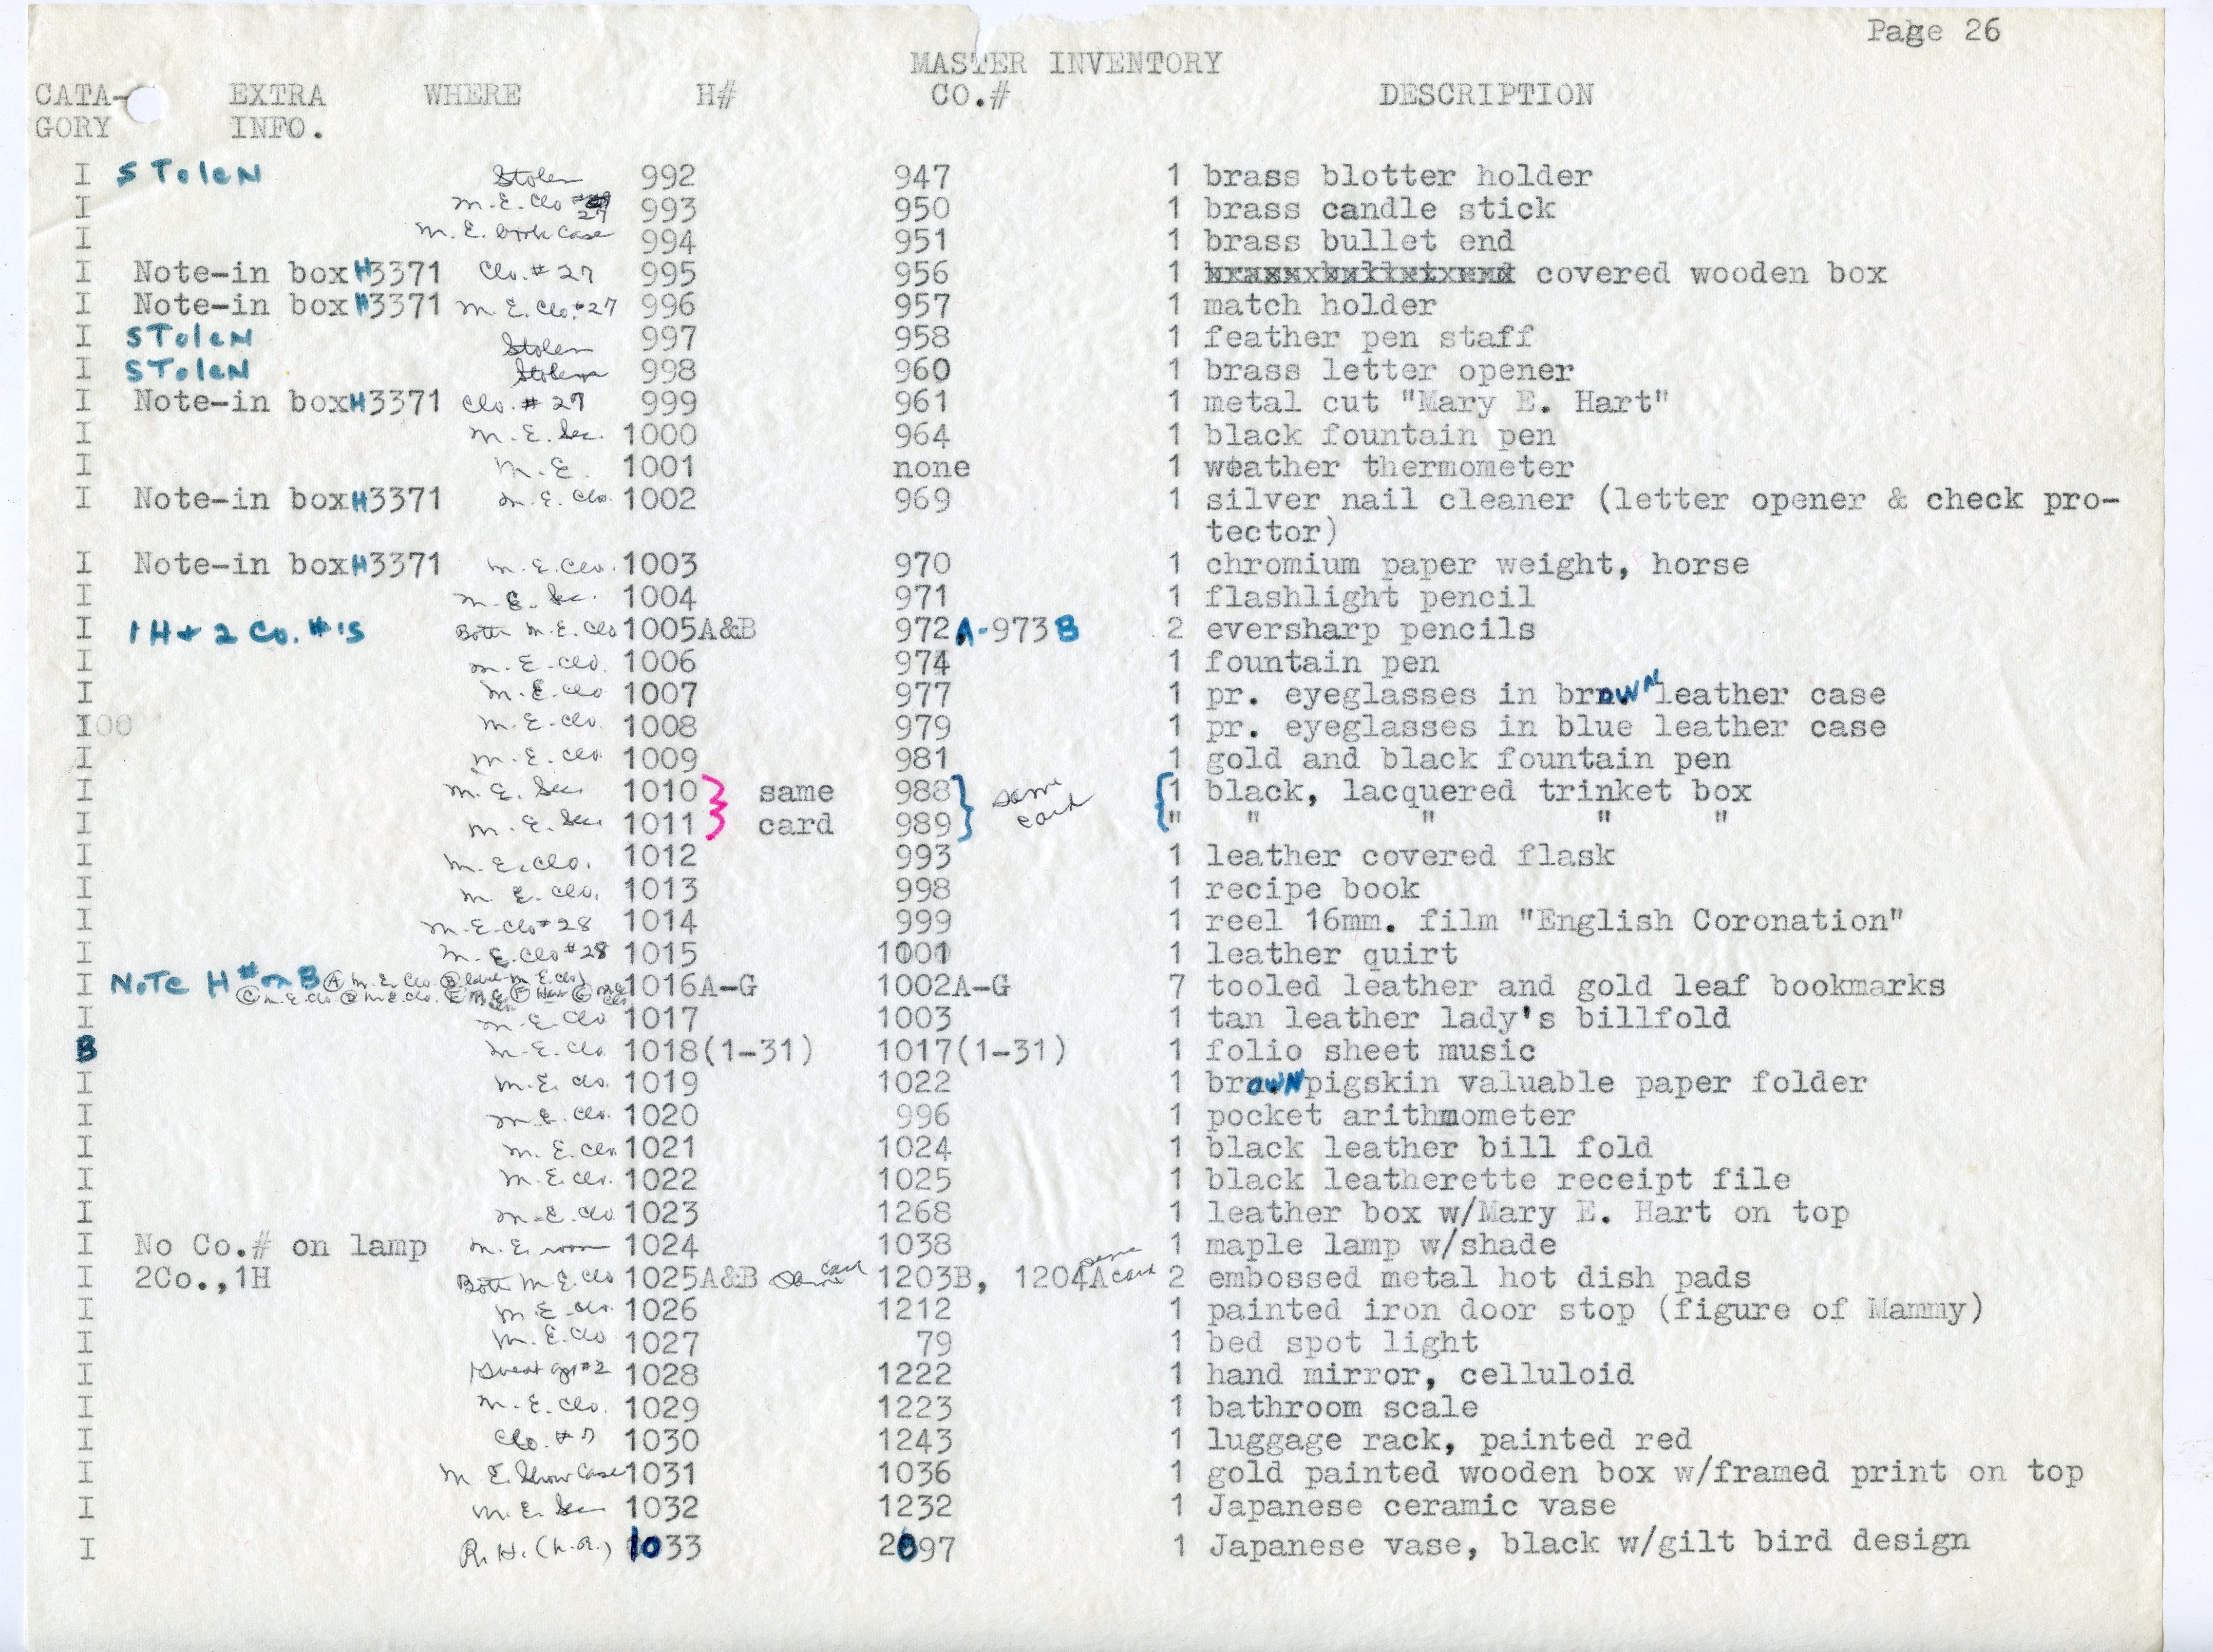 Page 26
MASTER INVENTORY
CATA- EXTRA WHERE H# CO.# DESCRIPTION
GORY INFO.
I STolen Stolen 992 947 1 brass blotter holder
I M.E. Clo # 27 993 950 1 brass candle stick
I M.E. book case 994 951 1 brass bullet end
I Note-in box H3371 Clo. #27 995 956 1 covered wooden box
I Note-in box H3371 M.E. Clo. #27 996 957 1 match holder
I STolen Stolen 997 958 1 feather pen staff
I STolen Stolen 998 960 1 brass letter opener
I Note-in box H3371 Clo. #27 999 961 1 metal cut "Mary E. Hart"
I M.E. Sec. 1000 964 1 black fountain pen
I M.E. 1001 none 1 weather thermometer
I Note-in box H3371 M.E. Clo. 1002 969 1 silver nail cleaner (letter opener & check pro-
tector)
I Note-in box H3371 M.E. Clo. 1003 970 1 chromium paper weight, horse
I M.E. Sec. 1004 971 1 flashlight pencil
I 1 H + 2 Co. #'s Both M.E. Clo 1005A&B 972A-973B 2 eversharp pencils
I M.E. Clo. 1006 974 1 fountain pen
I M.E. Clo 1007 977 1 pr. eyeglasses in brown leather case
I00 M.E. Clo. 1008 979 1 pr. eyeglasses in blue leather case
I M.E. Clo. 1009 981 1 gold and black fountain pen
I M.E. Sec. 1010 } same 988 } same 1 black, lacquered trinket box
I M.E. Sec. 1011 } card 989 } card " " " " "
I M.E. Clo. 1012 993 1 leather covered flask
I M.E. Clo. 1013 998 1 recipe book
I M.E. Clo #28 1014 999 1 reel 16mm. film "English Coronation"
I M.E. Clo #28 1015 1001 1 leather quirt
I NoTe H# on B Ⓐ M.E. Clo. Ⓑ M.E. Clo) 1016A-G 1002A-G 7 tooled leather and gold leaf bookmarks
Ⓒ M.E. Clo Ⓓ M.E. Clo. Ⓔ M.E. Ⓕ Ⓖ M.E. Clo
I M.E. Clo 1017 1003 1 tan leather lady's billfold
B M.E. Clo 1018(1-31) 1017(1-31) 1 folio sheet music
I M.E. Clo. 1019 1022 1 brown pigskin valuable paper folder
I M.E. Clo. 1020 996 1 pocket arithmometer
I M.E. Clo 1021 1024 1 black leather bill fold
I M.E. Clo. 1022 1025 1 black leatherette receipt file
I M.E. Clo 1023 1268 1 leather box w/Mary E. Hart on top
I No Co.# on lamp M.E. room 1024 1038 1 maple lamp w/shade
I 2Co.,1H Both M.E. Clo 1025A&B same card 1203B, 1204A same card 2 embossed metal hot dish pads
I M.E. Clo. 1026 1212 1 painted iron door stop (figure of Mammy)
I M.E. Clo 1027 79 1 bed spot light
I Guest #2 1028 1222 1 hand mirror, celluloid
I M.E. Clo. 1029 1223 1 bathroom scale
I Clo. #7 1030 1243 1 luggage rack, painted red
I M.E. Show Case 1031 1036 1 gold painted wooden box w/framed print on top
I M.E. Sec 1032 1232 1 Japanese ceramic vase
I R.H. 1033 2097 1 Japanese vase, black w/gilt bird design